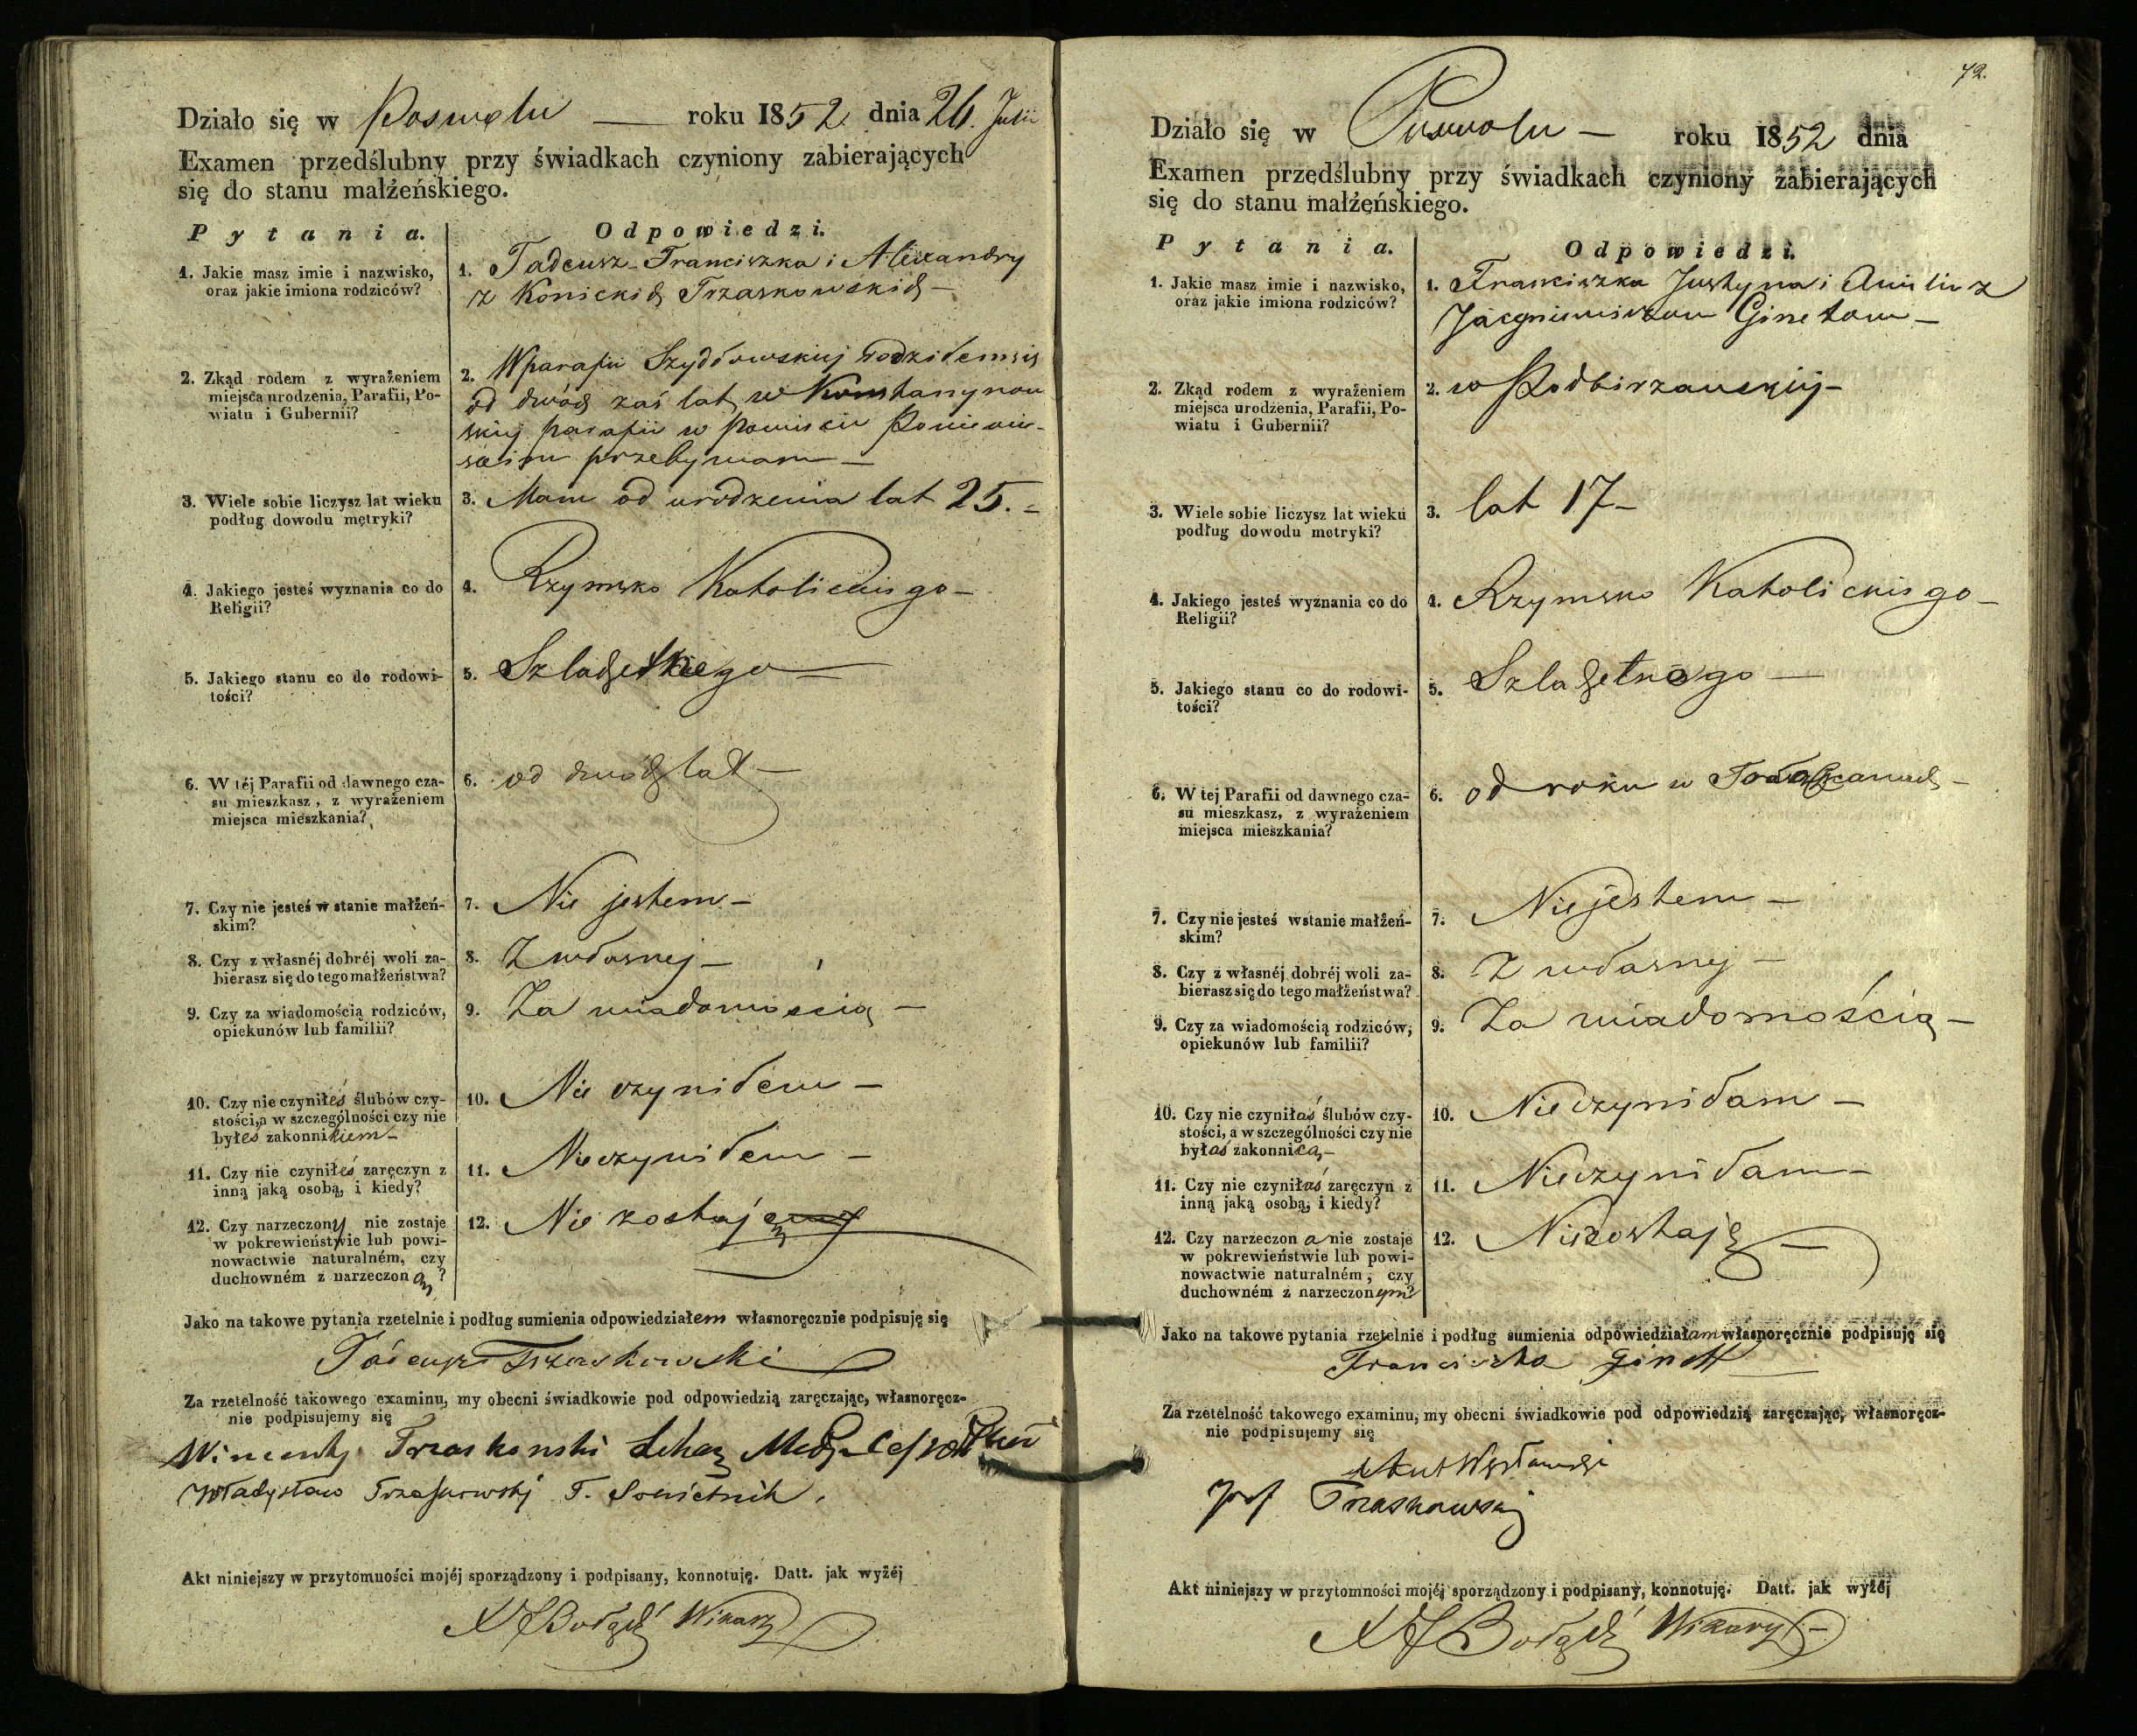 Działo się w Poswolu — roku 1852 dnia 26. Julii
Examen przedślubny przy świadkach czyniony zabierających
się do stanu małżeńskiego.
Pytania.
Odpowiedzi.
1. Jakie masz imie i nazwisko,
oraz jakie imiona rodziców?
1. Tadeusz Franciszka i Alexandry
z Konickich Trzaskowskich —
2. Zkąd rodem z wyrażeniem
miejsca urodzenia, Parafii, Po-
wiatu i Gubernii?
2. W parafii Szydłowskiej rodziłem się
od dwóch zaś lat w Konstantynow
skiej parafii w Powiecie Poniewie-
skim przebywam —
3. Wiele sobie liczysz lat wieku
podług dowodu metryki?
3. Mam od urodzenia lat 25. —
4. Jakiego jesteś wyznania co do
Religii?
4. Rzymsko Katolickiego —
5. Jakiego stanu co do rodowi-
tości?
5. Szlachetnego —
6. W téj Parafii od dawnego cza-
su mieszkasz, z wyrażeniem
miejsca mieszkania?
6. od dwóch lat —
7. Czy nie jesteś w stanie małżeń-
skim?
7. Nie jestem —
8. Czy z własnéj dobréj woli za-
bierasz się do tego małżeństwa?
8. Z własnej —
9. Czy za wiadomością rodziców,
opiekunów lub familii?
9. Za wiadomością —
10. Czy nie czyniłeś ślubów czy-
stości, a w szczególności czy nie
byłeś zakonnikiem —
10. Nie czyniłem —
11. Czy nie czyniłeś zaręczyn z
inną jaką osobą, i kiedy?
11. Nieczyniłem —
12. Czy narzeczony nie zostaje
w pokrewieństwie lub powi-
nowactwie naturalném, czy
duchowném z narzeczoną?
12. Nie zostaję
Jako na takowe pytania rzetelnie i podług sumienia odpowiedziałem własnoręcznie podpisuję się
Tadeusz Trzaskowski
Za rzetelność takowego examinu, my obecni świadkowie pod odpowiedzią zaręczając, własnoręcz-
nie podpisujemy się
Wincenty Trzaskowski Lekarz
Władysław Trzaskowski T. Sowietnik.
Akt niniejszy w przytomności mojéj sporządzony i podpisany, konnotuję. Datt. jak wyżéj
Wikary
72.
Działo się w Poswolu — roku 1852 dnia
Examen przedślubny przy świadkach czyniony zabierających
się do stanu małżeńskiego.
Pytania.
Odpowiedzi.
1. Jakie masz imie i nazwisko,
oraz jakie imiona rodziców?
1. Franciszka Justyna i Anieli z
Ginetow —
2. Zkąd rodem z wyrażeniem
miejsca urodzenia, Parafii, Po-
wiatu i Gubernii?
2. w Podbirzańskiej —
3. Wiele sobie liczysz lat wieku
podług dowodu metryki?
3. lat 17 —
4. Jakiego jesteś wyznania co do
Religii?
4. Rzymsko Katolickiego —
5. Jakiego stanu co do rodowi-
tości?
5. Szlachetnego —
6. W tej Parafii od dawnego cza-
su mieszkasz, z wyrażeniem
miejsca mieszkania?
6. od roku w
7. Czy nie jesteś wstanie małżeń-
skim?
7. Niejestem —
8. Czy z własnéj dobréj woli za-
bierasz się do tego małżeństwa?
8. Z własnej —
9. Czy za wiadomością rodziców,
opiekunów lub familii?
9. Za wiadomością —
10. Czy nie czyniłaś ślubów czy-
stości, a w szczególności czy nie
byłaś zakonnicą —
10. Nieczyniłam —
11. Czy nie czyniłaś zaręczyn z
inną jaką osobą, i kiedy?
11. Nieczyniłam —
12. Czy narzeczona nie zostaje
w pokrewieństwie lub powi-
nowactwie naturalném, czy
duchowném z narzeczonym?
12. Niezostaję —
Jako na takowe pytania rzetelnie i podług sumienia odpowiedziałam własnoręcznie podpisuję się
Franciszka Ginett
Za rzetelność takowego examinu, my obecni świadkowie pod odpowiedzią zaręczając, własnoręcz-
nie podpisujemy się
Trzaskowski
Akt niniejszy w przytomności mojéj sporządzony i podpisany, konnotuję. Datt. jak wyżéj
Wikary —